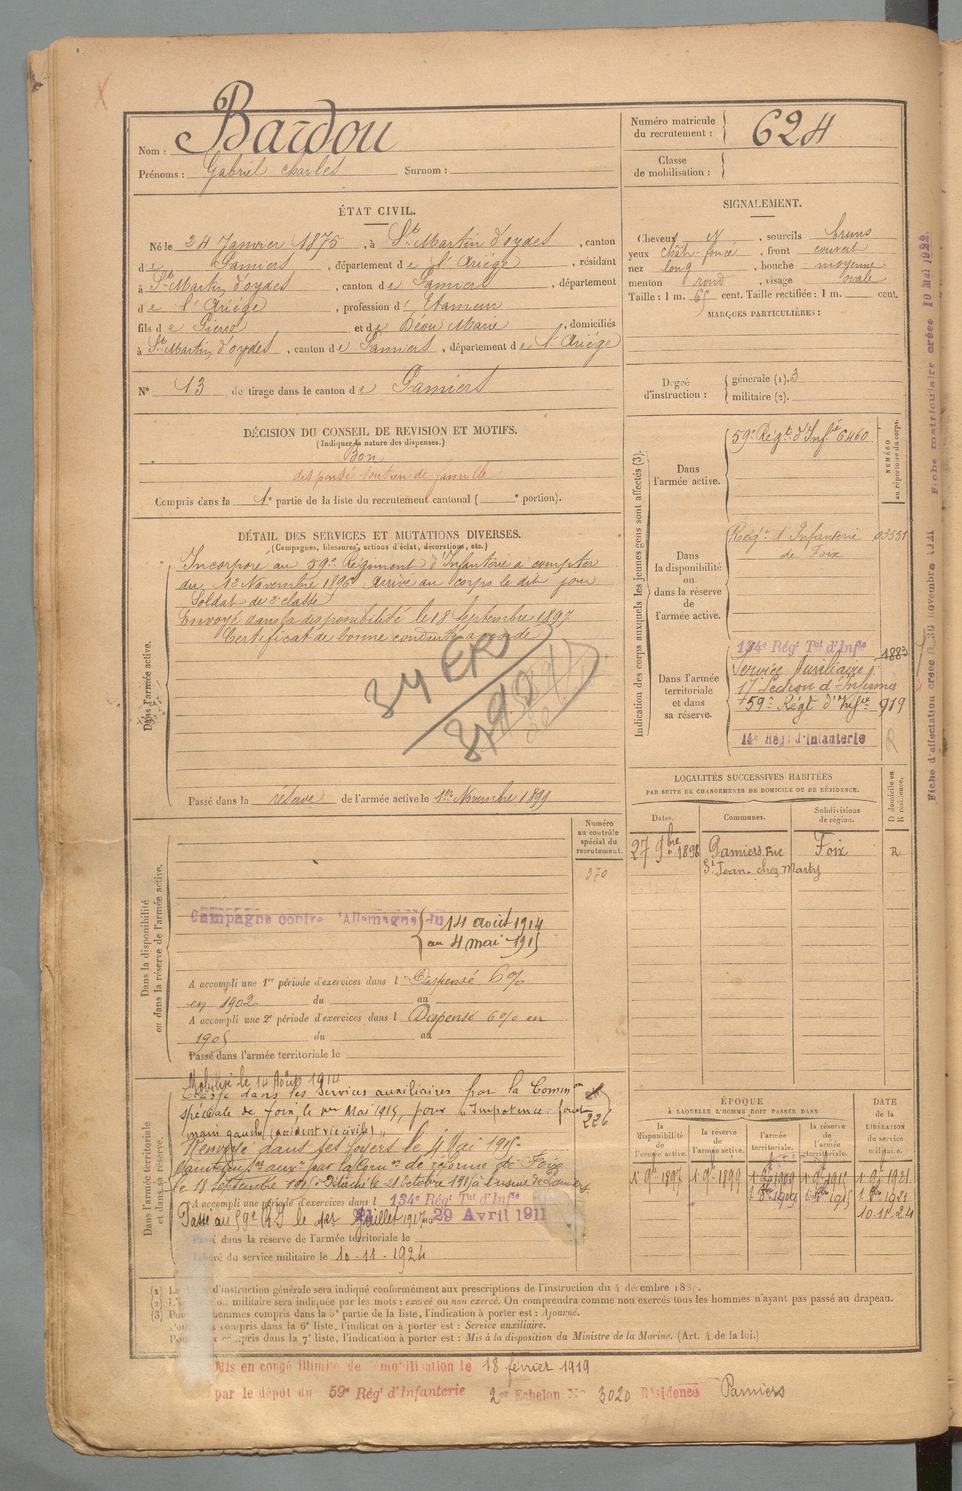 Nom : Bardou
Prénoms : Gabriel Charles Surnom :
Numéro matricule du recrutement : 624
Classe de mobilisation :
ÉTAT CIVIL.
Né le 24 Janvier 1875, à St Martin d'oydes, canton
de Pamiers, département de l'Ariège, résidant
à St Martin d'oydes, canton de Pamiers, département
de l'Ariège, profession d' Etameur
fils de Pierre et de Déou Marie, domiciliés
à St Martin d'oydes, canton de Pamiers, département de l'Ariège
N° 13 de tirage dans le canton de Pamiers
SIGNALEMENT.
Cheveux N, sourcils bruns
yeux chât. foncé, front couvert
nez long, bouche moyenne
menton rond, visage ovale
Taille : 1 m. 65 cent. Taille rectifiée : 1 m. cent.
MARQUES PARTICULIÈRES :
Degré d'instruction : générale (1). 3
militaire (2).
DÉCISION DU CONSEIL DE REVISION ET MOTIFS.
(Indiquer la nature des dispenses.)
Bon
dispensé soutien de famille
Compris dans la 1e partie de la liste du recrutement cantonal ( e portion).
DÉTAIL DES SERVICES ET MUTATIONS DIVERSES.
(Campagnes, blessures, actions d'éclat, décorations, etc.)
Dans l'armée active.
Incorporé au 59e Régiment d'Infanterie à compter
du 12 Novembre 1896. Arrivé au corps le dit jour
Soldat de 2e classe
Envoyé dans la disponibilité le 18 Septembre 1897
Certificat de bonne conduite accordé
Passé dans la réserve de l'armée active le 1er Novembre 1899
Indication des corps auxquels les jeunes gens sont affectés (3).
NUMÉRO au répertoire du corps.
Dans l'armée active.
59e Régt d'Infie 6460
Dans la disponibilité ou dans la réserve de l'armée active.
Régt d'Infanterie de Foix 03551
Dans l'armée territoriale et dans sa réserve.
134e Régt Tal d'Infie
Service Auxiliaire
17 Section d'Infirmiers
59e Régt d'Infie 919
14e Régt d'Infanterie R
Fiche d'affectation créée 30 Novembre 1921 Fiche matriculaire créée 10 Mai 1922
LOCALITÉS SUCCESSIVES HABITÉES
PAR SUITE DE CHANGEMENTS DE DOMICILE OU DE RÉSIDENCE.
D domicile ou R résidence.
Dates. Communes. Subdivisions de région.
27 9bre 1898 Pamiers Rue Foix R
St Jean chez Marty
Numéro au contrôle spécial du recrutement.
370
Dans la disponibilité ou dans la réserve de l'armée active.
Campagne contre l'Allemagne du 14 août 1914
au 4 mai 1915
A accompli une 1re période d'exercices dans l Dispensé 6%
en 1902 du au
A accompli une 2e période d'exercices dans l Dispensé 6% en
1905 du au
Passé dans l'armée territoriale le
Dans l'armée territoriale et dans sa réserve.
Mobilisé le 14 Août 1914
Classé dans les Services auxiliaires par la Common
spéciale de Foix le 1er Mai 1915, pour "Impotence
main gauche (accident vie civile)"
226
Renvoyé dans ses foyers le 4 Mai 1915
par la Comon de réforme de Foix
le 18 septembre 1915. Détaché le 21 octobre 1915 à l'usine de Pamiers
A accompli une période d'exercices dans l 134e Régt Tal d'Infie
Passé au 59e RI le 1er Juillet 1917 29 Avril 1911
Passé dans la réserve de l'armée territoriale le
Libéré du service militaire le 10-11-1924
ÉPOQUE
À LAQUELLE L'HOMME DOIT PASSER DANS
la disponibilité de l'armée active. la réserve de l'armée active. l'armée territoriale. la réserve de l'armée territoriale.
DATE de la LIBÉRATION du service militaire.
1 9bre 1897 1 9bre 1899 1 9bre 1909 1 9bre 1915 1 9bre 1921
10.11.24
(1) Le d'instruction générale sera indiqué conformément aux prescriptions de l'instruction du 4 décembre 1889.
(2) L'instruction militaire sera indiquée par les mots : exercé ou non exercé. On comprendra comme non exercés tous les hommes n'ayant pas passé au drapeau.
(3) Pour hommes compris dans la 5e partie de la liste, l'indication à porter est : Ajourné.
Pour compris dans la 6e liste, l'indication à porter est : Service auxiliaire.
Pour compris dans la 7e liste, l'indication à porter est : Mis à la disposition du Ministre de la Marine. (Art. 4 de la loi.)
Mis en congé illimité de démobilisation le 18 février 1919
par le dépôt du 59e Régt d'Infanterie 2e Echelon N° 3020 Résidence Pamiers